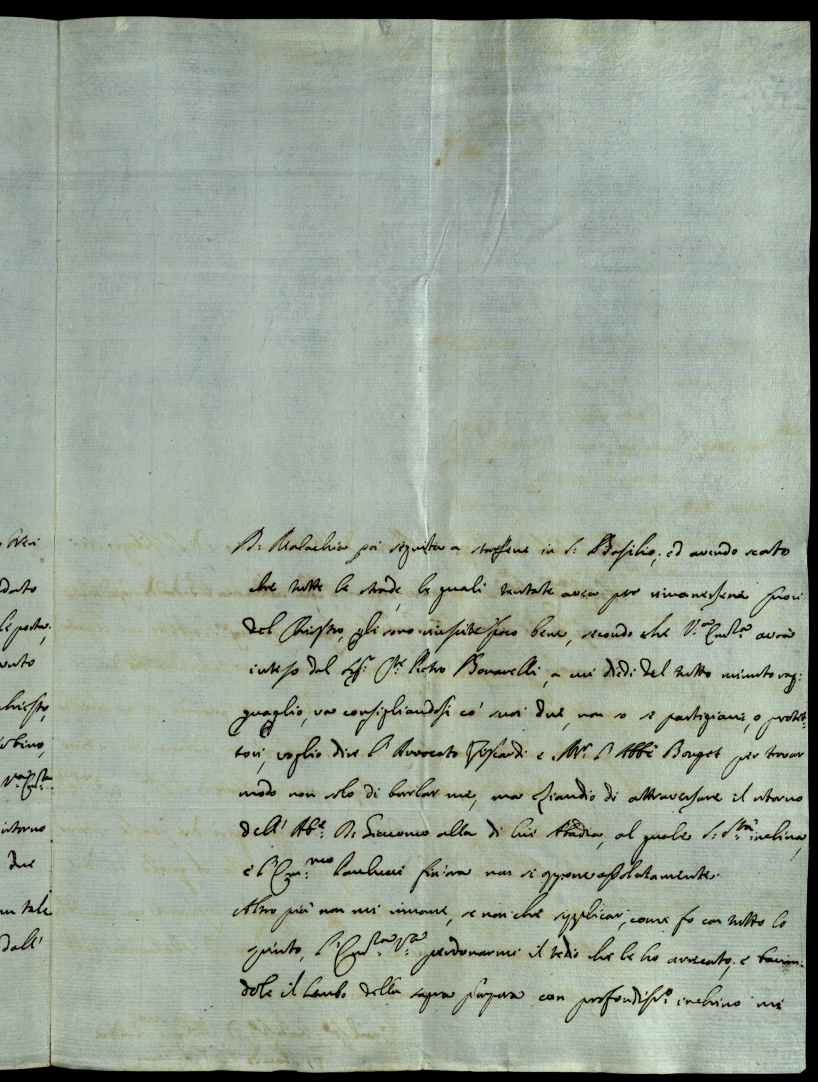 veri
dato
le porta,
vuto
chiesto,
obino,
V.ra Em.za
intorno
due
un tale
dall'
D: Malachia poi seguita a starsene in S: Basilio; ed avendo scorto
che tutte le strade, le quali tentate avea per rimanersene fuori
del Chiostro, gli sono riuscite poco bene, secondo che V.ra Em.za avrà
inteso dal Sig.r C.te Pietro Bonarelli, a cui diedi del tutto minuto rag:
guaglio, va consigliandosi co' suoi due, non so se partigiani, o protet:
tori, voglio dire l'Avvocato e Mr. l'Abbè Bouget per trovar
modo non solo di burlar me, ma eziandio di attraversare il ritorno
dell'Ab.e D: Giacomo alla di lui Abadia, al quale S: S.tà inclina,
e l'Em.mo Paulucci finora non si oppone assolutamente.
Altro più non mi rimane, se non che supplicar, come fo con tutto lo
spirito, l'Em.za V.ra perdonarmi il tedio che le ho arrecato; e bacian:
dole il lembo della sagra porpora con profondiss.o inchino mi